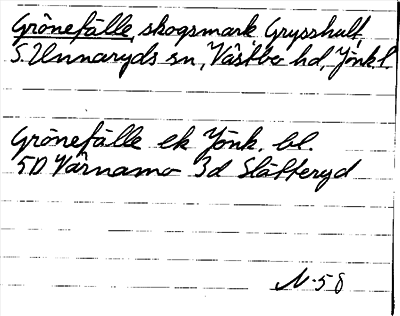 Grönefälle, skogsmark Grysshult
S. Unnaryds sn, Västbo hd, Jönk l.
Grönefälle ek Jönk. bl.
5D Värnamo 3d Slätteryd
N-58